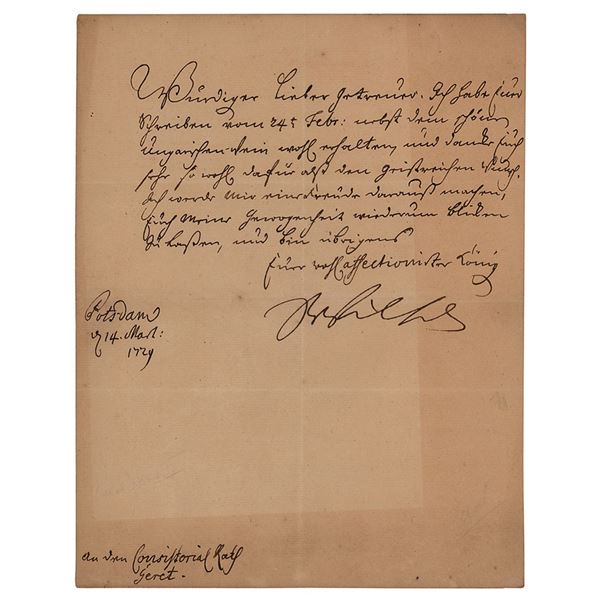 Würdiger Lieber Getreuer. Ich habe Euer
Schreiben vom 24t Febr: nebst dem schönen
ungarischen Wein wohl erhalten, und dancke Euch
sehr so wohl dafür alß den Geistreichen Wunsch.
Ich werde mir eine Freude darauß machen,
Euch Meine Gewogenheit wiederum blicken
zu laßen, und bin übrigens
Euer wohl affectionirter König
Potsdam
d 14. Mart:
1729
an den Consistorial Rath
Geret.